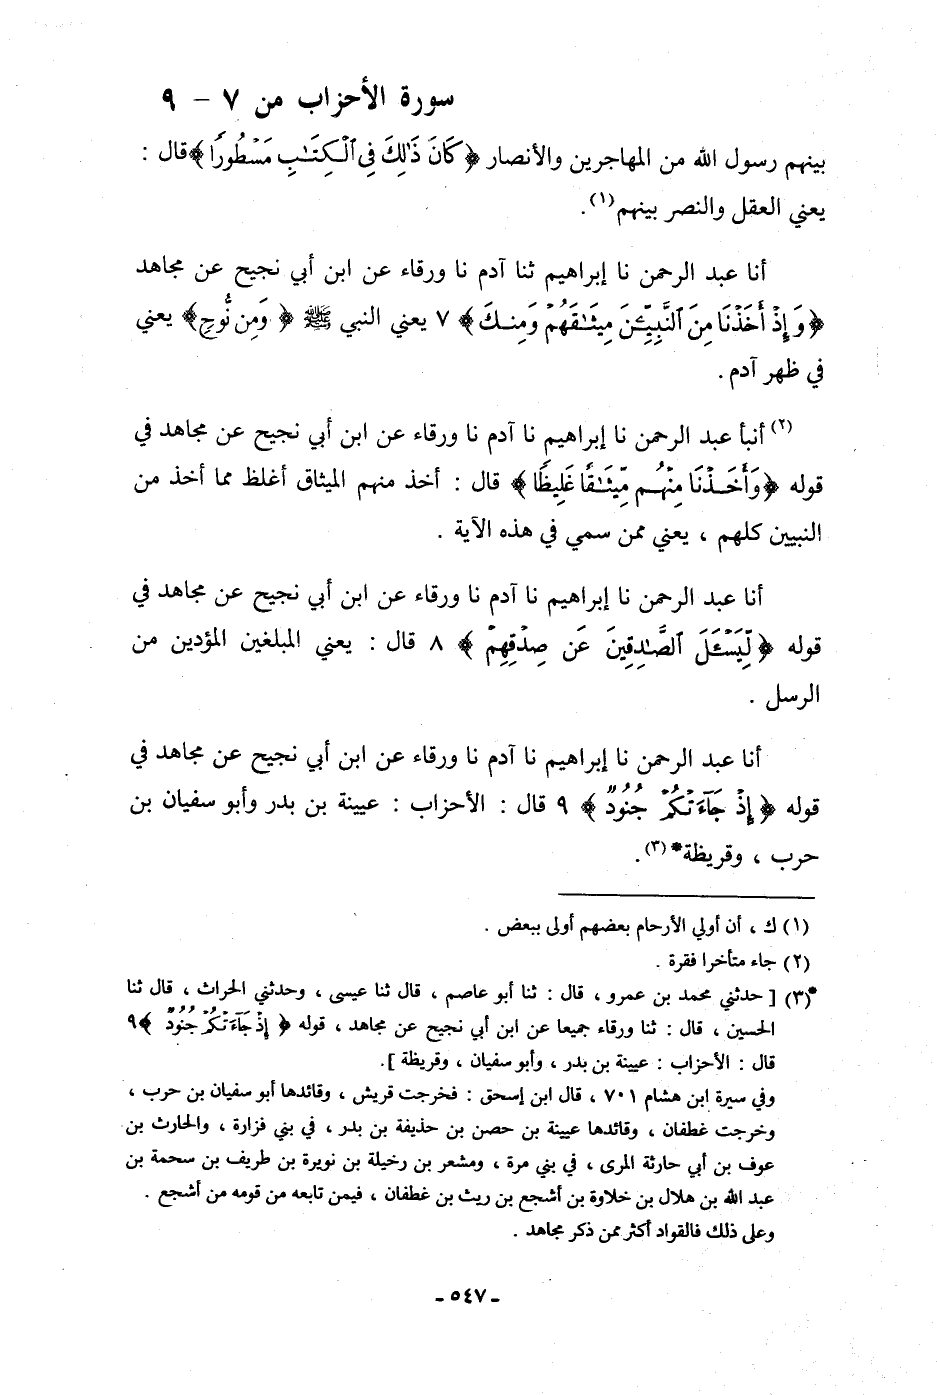 سورة الأحزاب من ٧ - ٩
بينهم رسول الله من المهاجرين والأنصار ﴿كَانَ ذَٰلِكَ فِي ٱلْكِتَٰبِ مَسْطُورًا﴾ قال :
يعني العقل والنصر بينهم(١).
أنا عبد الرحمن نا إبراهيم ثنا آدم نا ورقاء عن ابن أبي نجيح عن مجاهد
﴿وَإِذْ أَخَذْنَا مِنَ ٱلنَّبِيِّـۧنَ مِيثَٰقَهُمْ وَمِنكَ﴾ ٧ يعني النبي ﷺ ﴿وَمِن نُّوحٍ﴾ يعني
في ظهر آدم .
(٢) أنبأ عبد الرحمن نا إبراهيم نا آدم نا ورقاء عن ابن أبي نجيح عن مجاهد في
قوله ﴿وَأَخَذْنَا مِنْهُم مِّيثَٰقًا غَلِيظًا﴾ قال : أخذ منهم الميثاق أغلظ مما أخذ من
النبيين كلهم ، يعني ممن سمي في هذه الآية .
أنا عبد الرحمن نا إبراهيم نا آدم نا ورقاء عن ابن أبي نجيح عن مجاهد في
قوله ﴿لِّيَسْـَٔلَ ٱلصَّٰدِقِينَ عَن صِدْقِهِمْ﴾ ٨ قال : يعني المبلغين المؤدين من
الرسل .
أنا عبد الرحمن نا إبراهيم نا آدم نا ورقاء عن ابن أبي نجيح عن مجاهد في
قوله ﴿إِذْ جَآءَتْكُمْ جُنُودٌ﴾ ٩ قال : الأحزاب : عيينة بن بدر وأبو سفيان بن
حرب ، وقريظة*(٣).
(١) ك ، أن أولي الأرحام بعضهم أولى ببعض .
(٢) جاء متأخرا فقرة .
*(٣) [ حدثني محمد بن عمرو ، قال : ثنا أبو عاصم ، قال ثنا عيسى ، وحدثني الحراث ، قال ثنا
الحسين ، قال : ثنا ورقاء جميعا عن ابن أبي نجيح عن مجاهد ، قوله ﴿إِذْ جَآءَتْكُمْ جُنُودٌ﴾ ٩
قال : الأحزاب : عيينة بن بدر ، وأبو سفيان ، وقريظة ].
وفي سيرة ابن هشام ٧٠١ ، قال ابن إسحق : فخرجت قريش ، وقائدها أبو سفيان بن حرب ،
وخرجت غطفان ، وقائدها عيينة بن حصن بن حذيفة بن بدر ، في بني فزارة ، والحارث بن
عوف بن أبي حارثة المرى ، في بني مرة ، ومشعر بن رخيلة بن نويرة بن طريف بن سحمة بن
عبد الله بن هلال بن خلاوة بن أشجع بن ريث بن غطفان ، فيمن تابعه من قومه من أشجع .
وعلى ذلك فالقواد أكثر ممن ذكر مجاهد .
- ٥٤٧ -